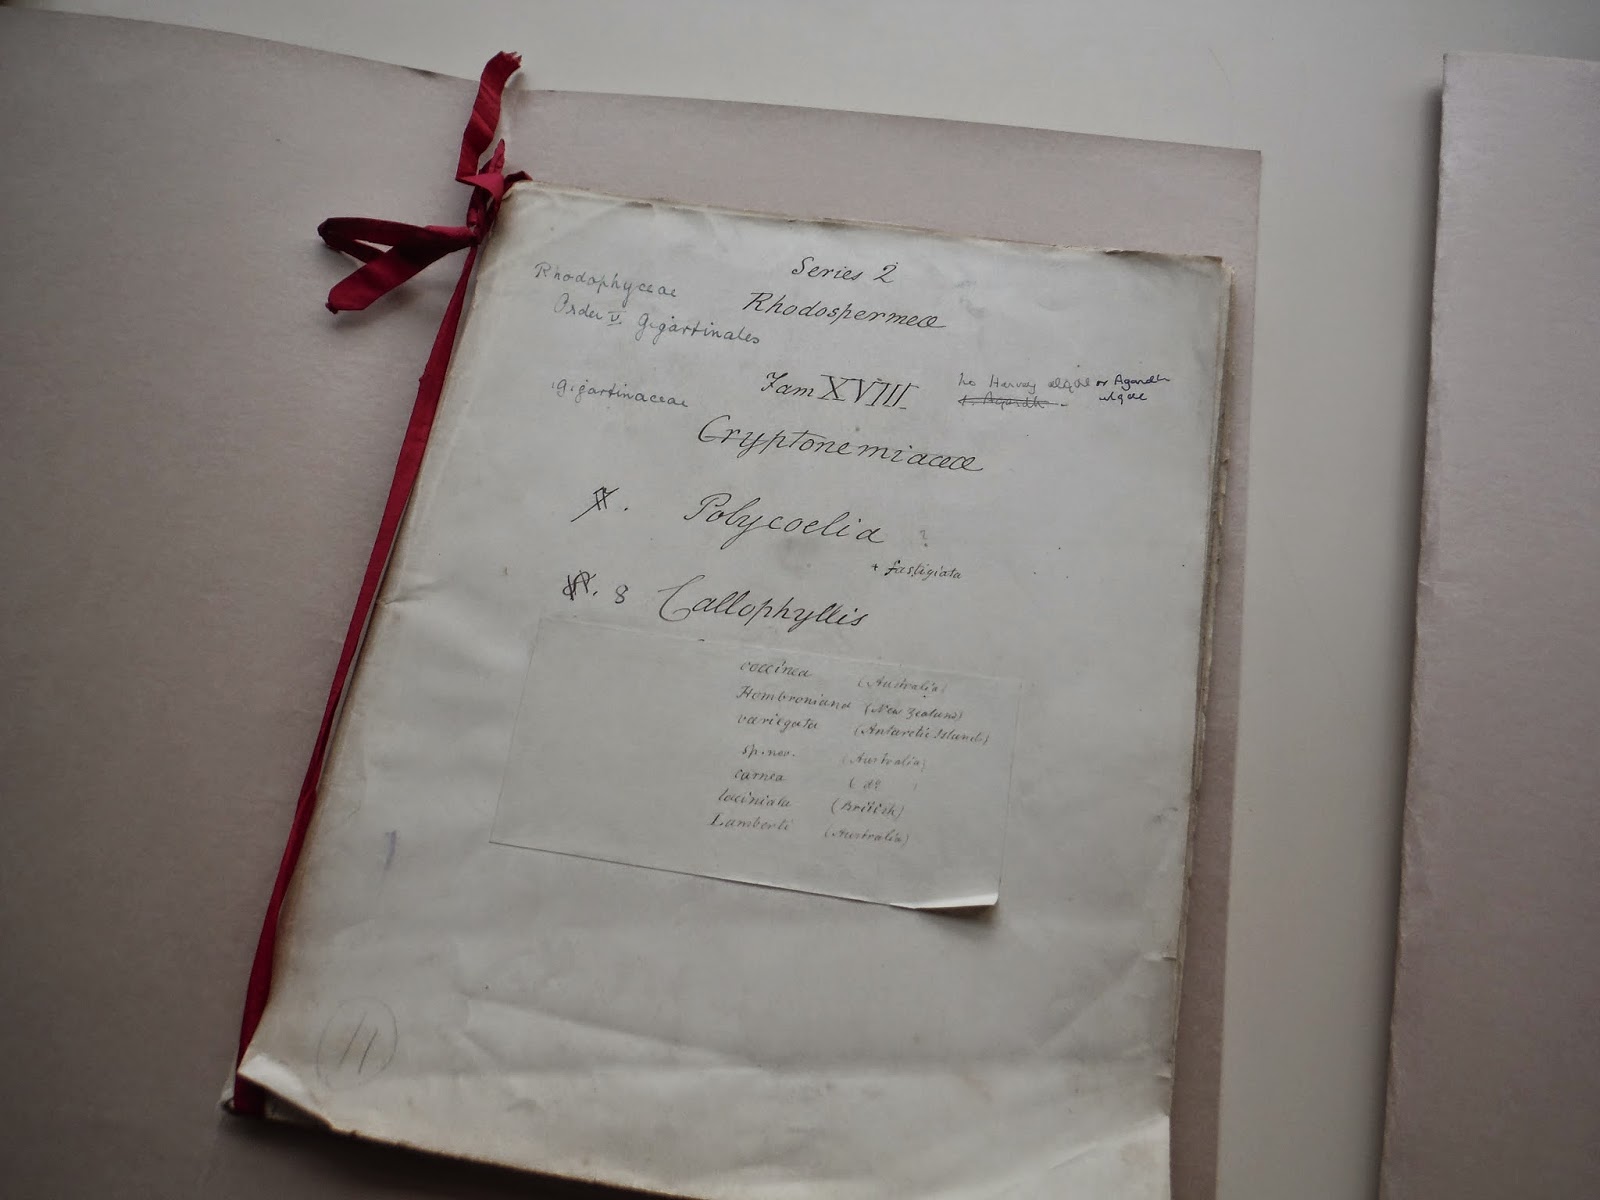 Series 2
Rhodophyceae
Rhodospermeæ
Order V. Gigartinales
Fam XVIII
no Harvey algae or Agardh
Agardh algae
Gigartinaceae
Cryptonemiaceæ
Polycoelia ?
+ fastigiata
8 Callophyllis
coccinea (Australia)
Hombroniana (New Zealand)
variegata (Antarctic Islands)
sp. nov. (Australia)
carnea ( do )
laciniata (British)
Lamberti (Australia)
11